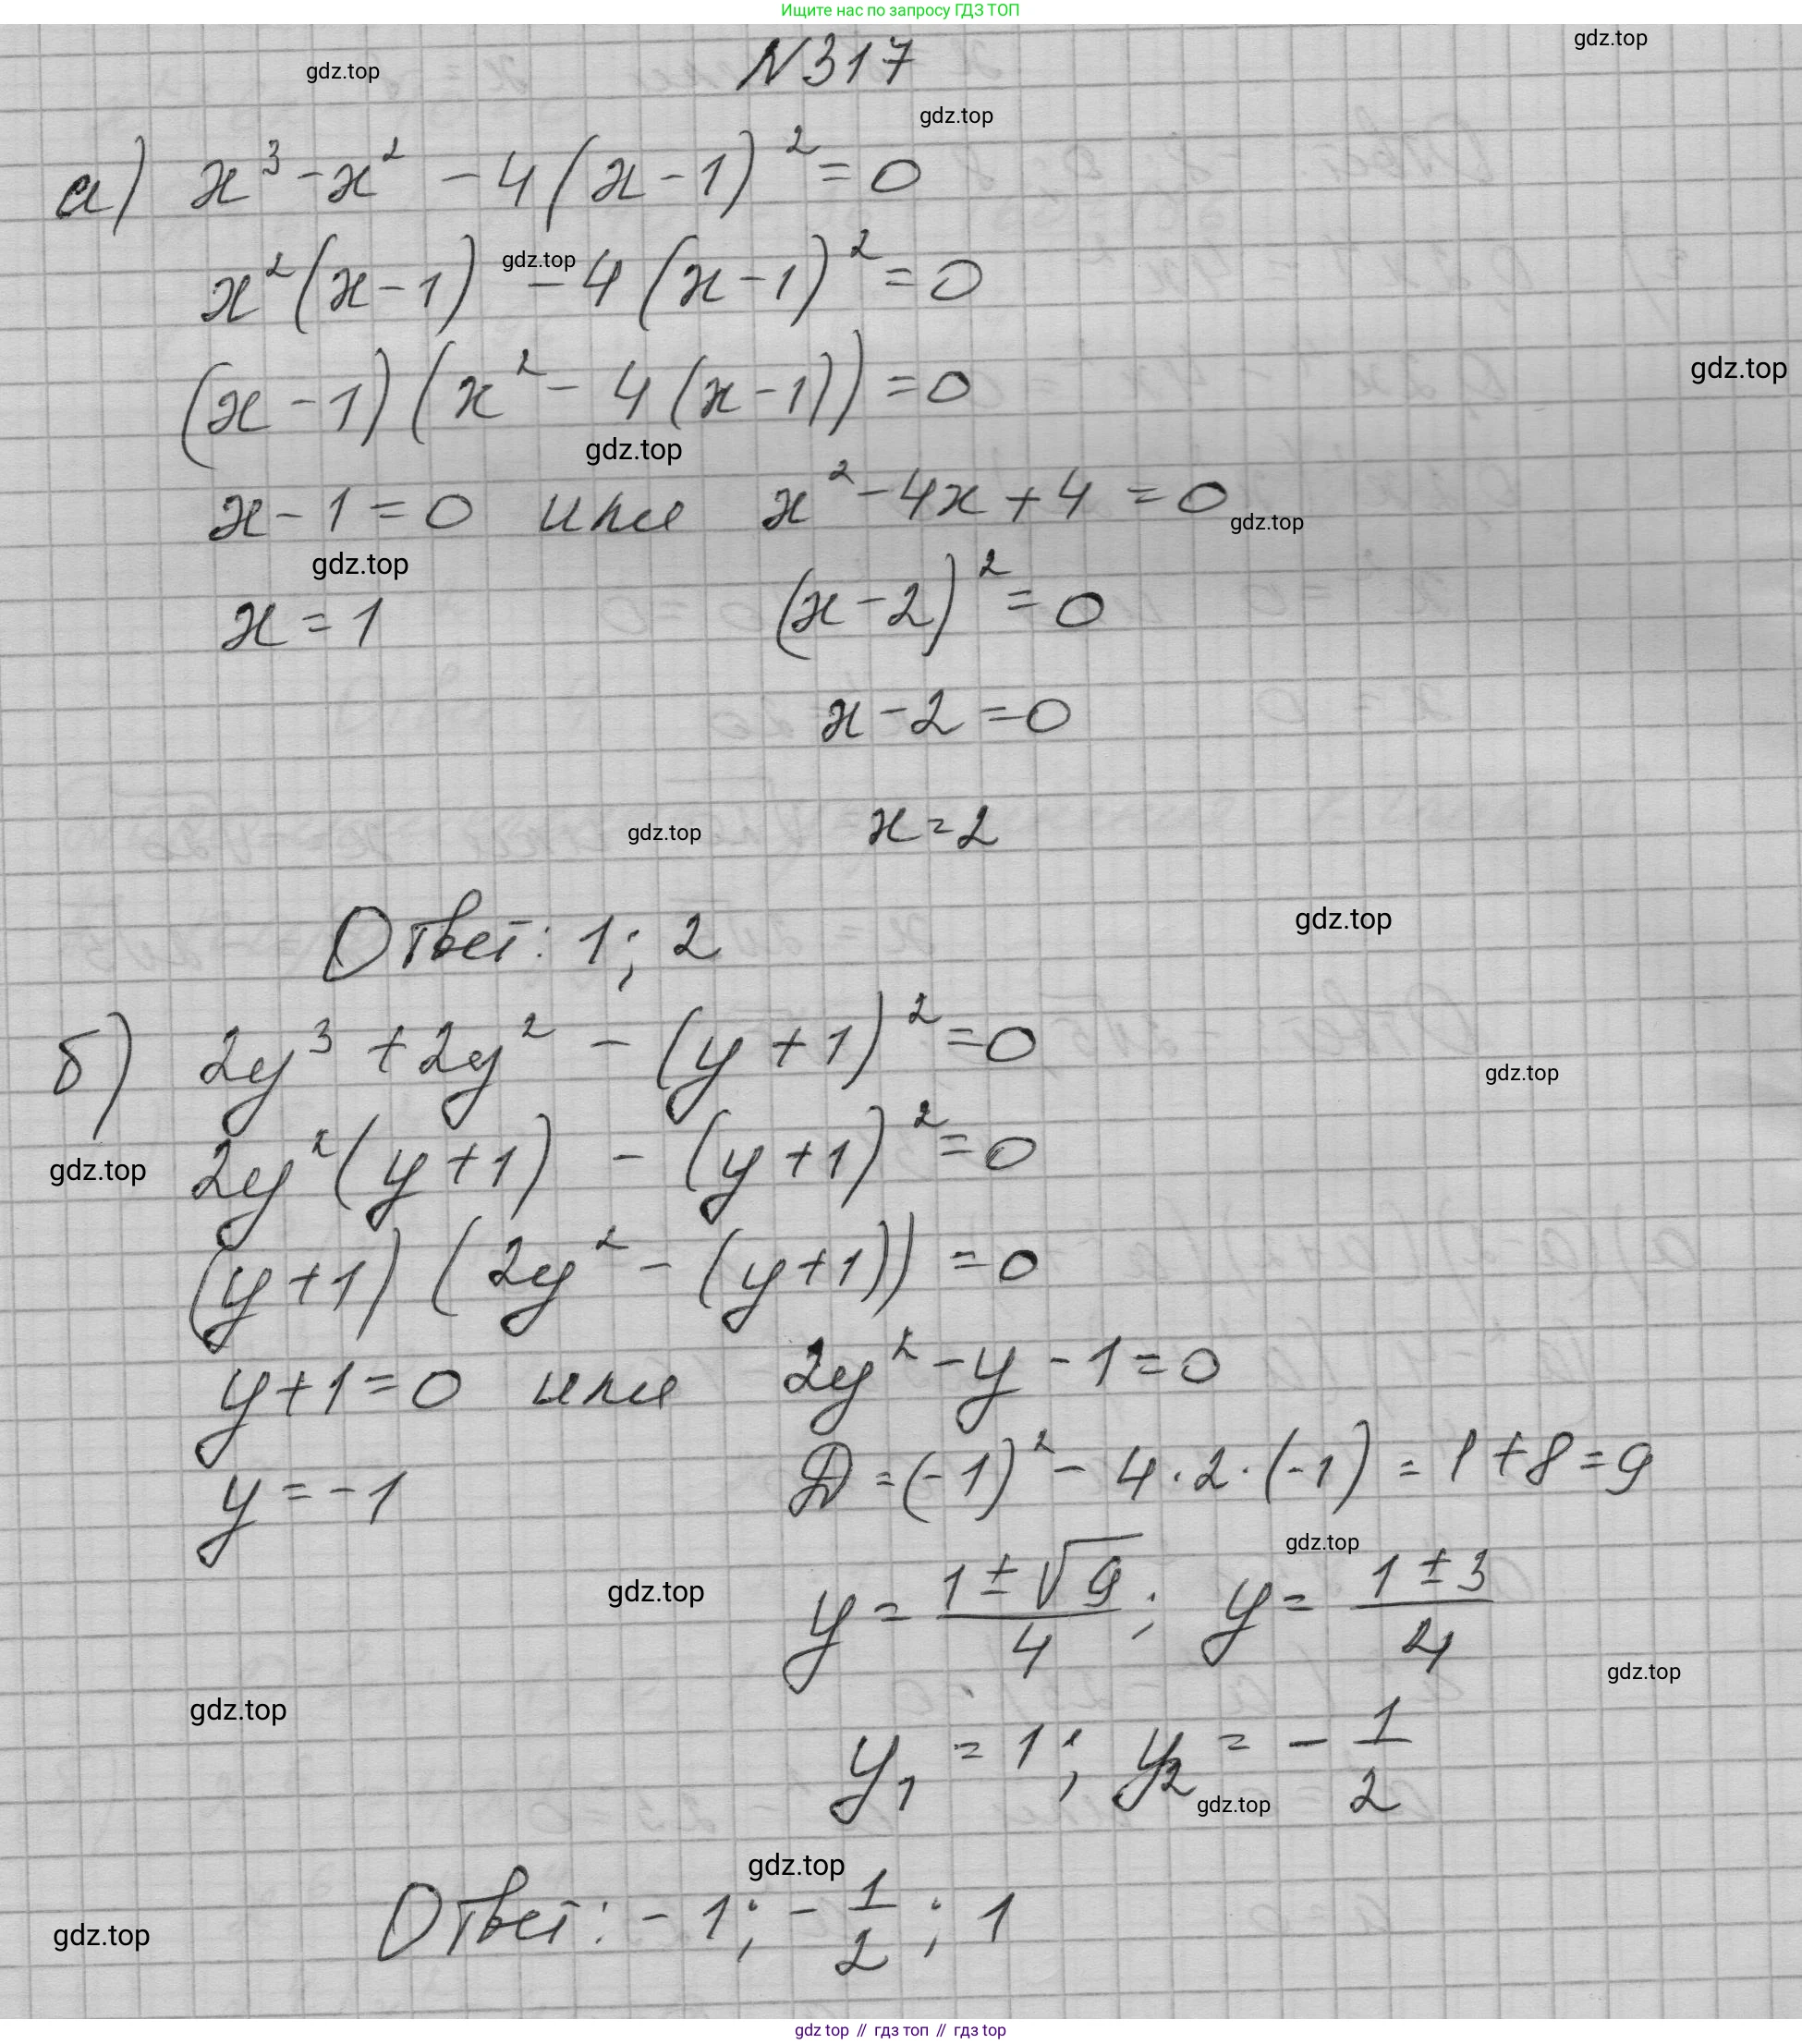 Ищите нас по запросу ГДЗ ТОП
N317
gdz.top
gdz.top
gdz.top
а) x³ - x² - 4(x - 1)² = 0
x²(x - 1) - 4(x - 1)² = 0
gdz.top
(x - 1)(x² - 4(x - 1)) = 0
gdz.top
gdz.top
x - 1 = 0 или x² - 4x + 4 = 0
gdz.top
gdz.top
x = 1 (x - 2)² = 0
x - 2 = 0
gdz.top
x = 2
Ответ: 1; 2
gdz.top
б) 2y³ + 2y² - (y + 1)² = 0
gdz.top
2y²(y + 1) - (y + 1)² = 0
gdz.top
(y + 1)(2y² - (y + 1)) = 0
y + 1 = 0 или 2y² - y - 1 = 0
y = -1 D = (-1)² - 4 · 2 · (-1) = 1 + 8 = 9
gdz.top
gdz.top
y = (1 ± √9)/4; y = (1 ± 3)/4
gdz.top
gdz.top
y₁ = 1; y₂ = - 1/2
gdz.top
gdz.top
Ответ: - 1; - 1/2; 1
gdz.top
gdz top // гдз топ // гдз top